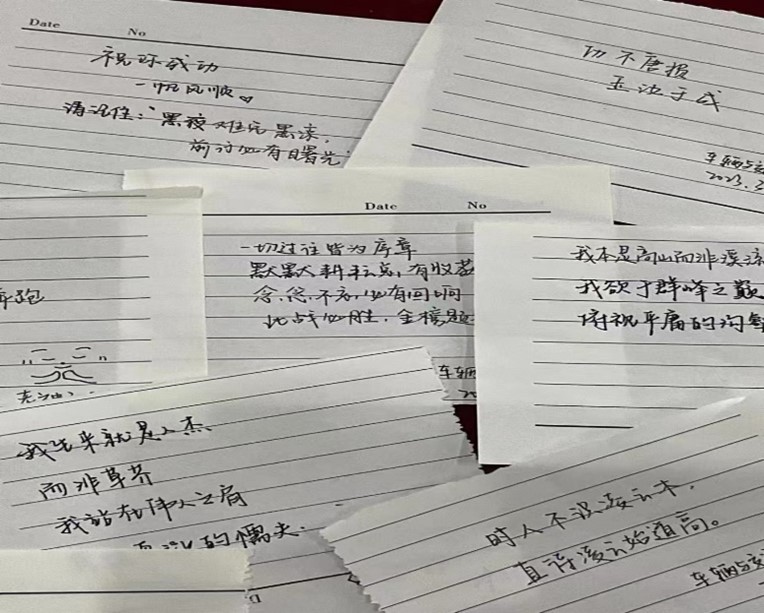 Date No
祝你成功
一帆风顺
请记住：“黑夜难免黑漆，
前行必有曙光
功不唐捐
玉汝于成
车辆与交
2023.3
Date No
一切过往皆为序章
默默耕耘，有收获
念念不忘，必有回响
此战必胜，金榜题
车辆
20
奔跑
加油
我本是高山而非溪流
我欲于群峰之巅
俯视平庸的沟壑
我生来就是人杰
而非草芥
我站在伟人之肩
的懦夫.
时人不识凌云木，
直待凌云始道高。
车辆与交